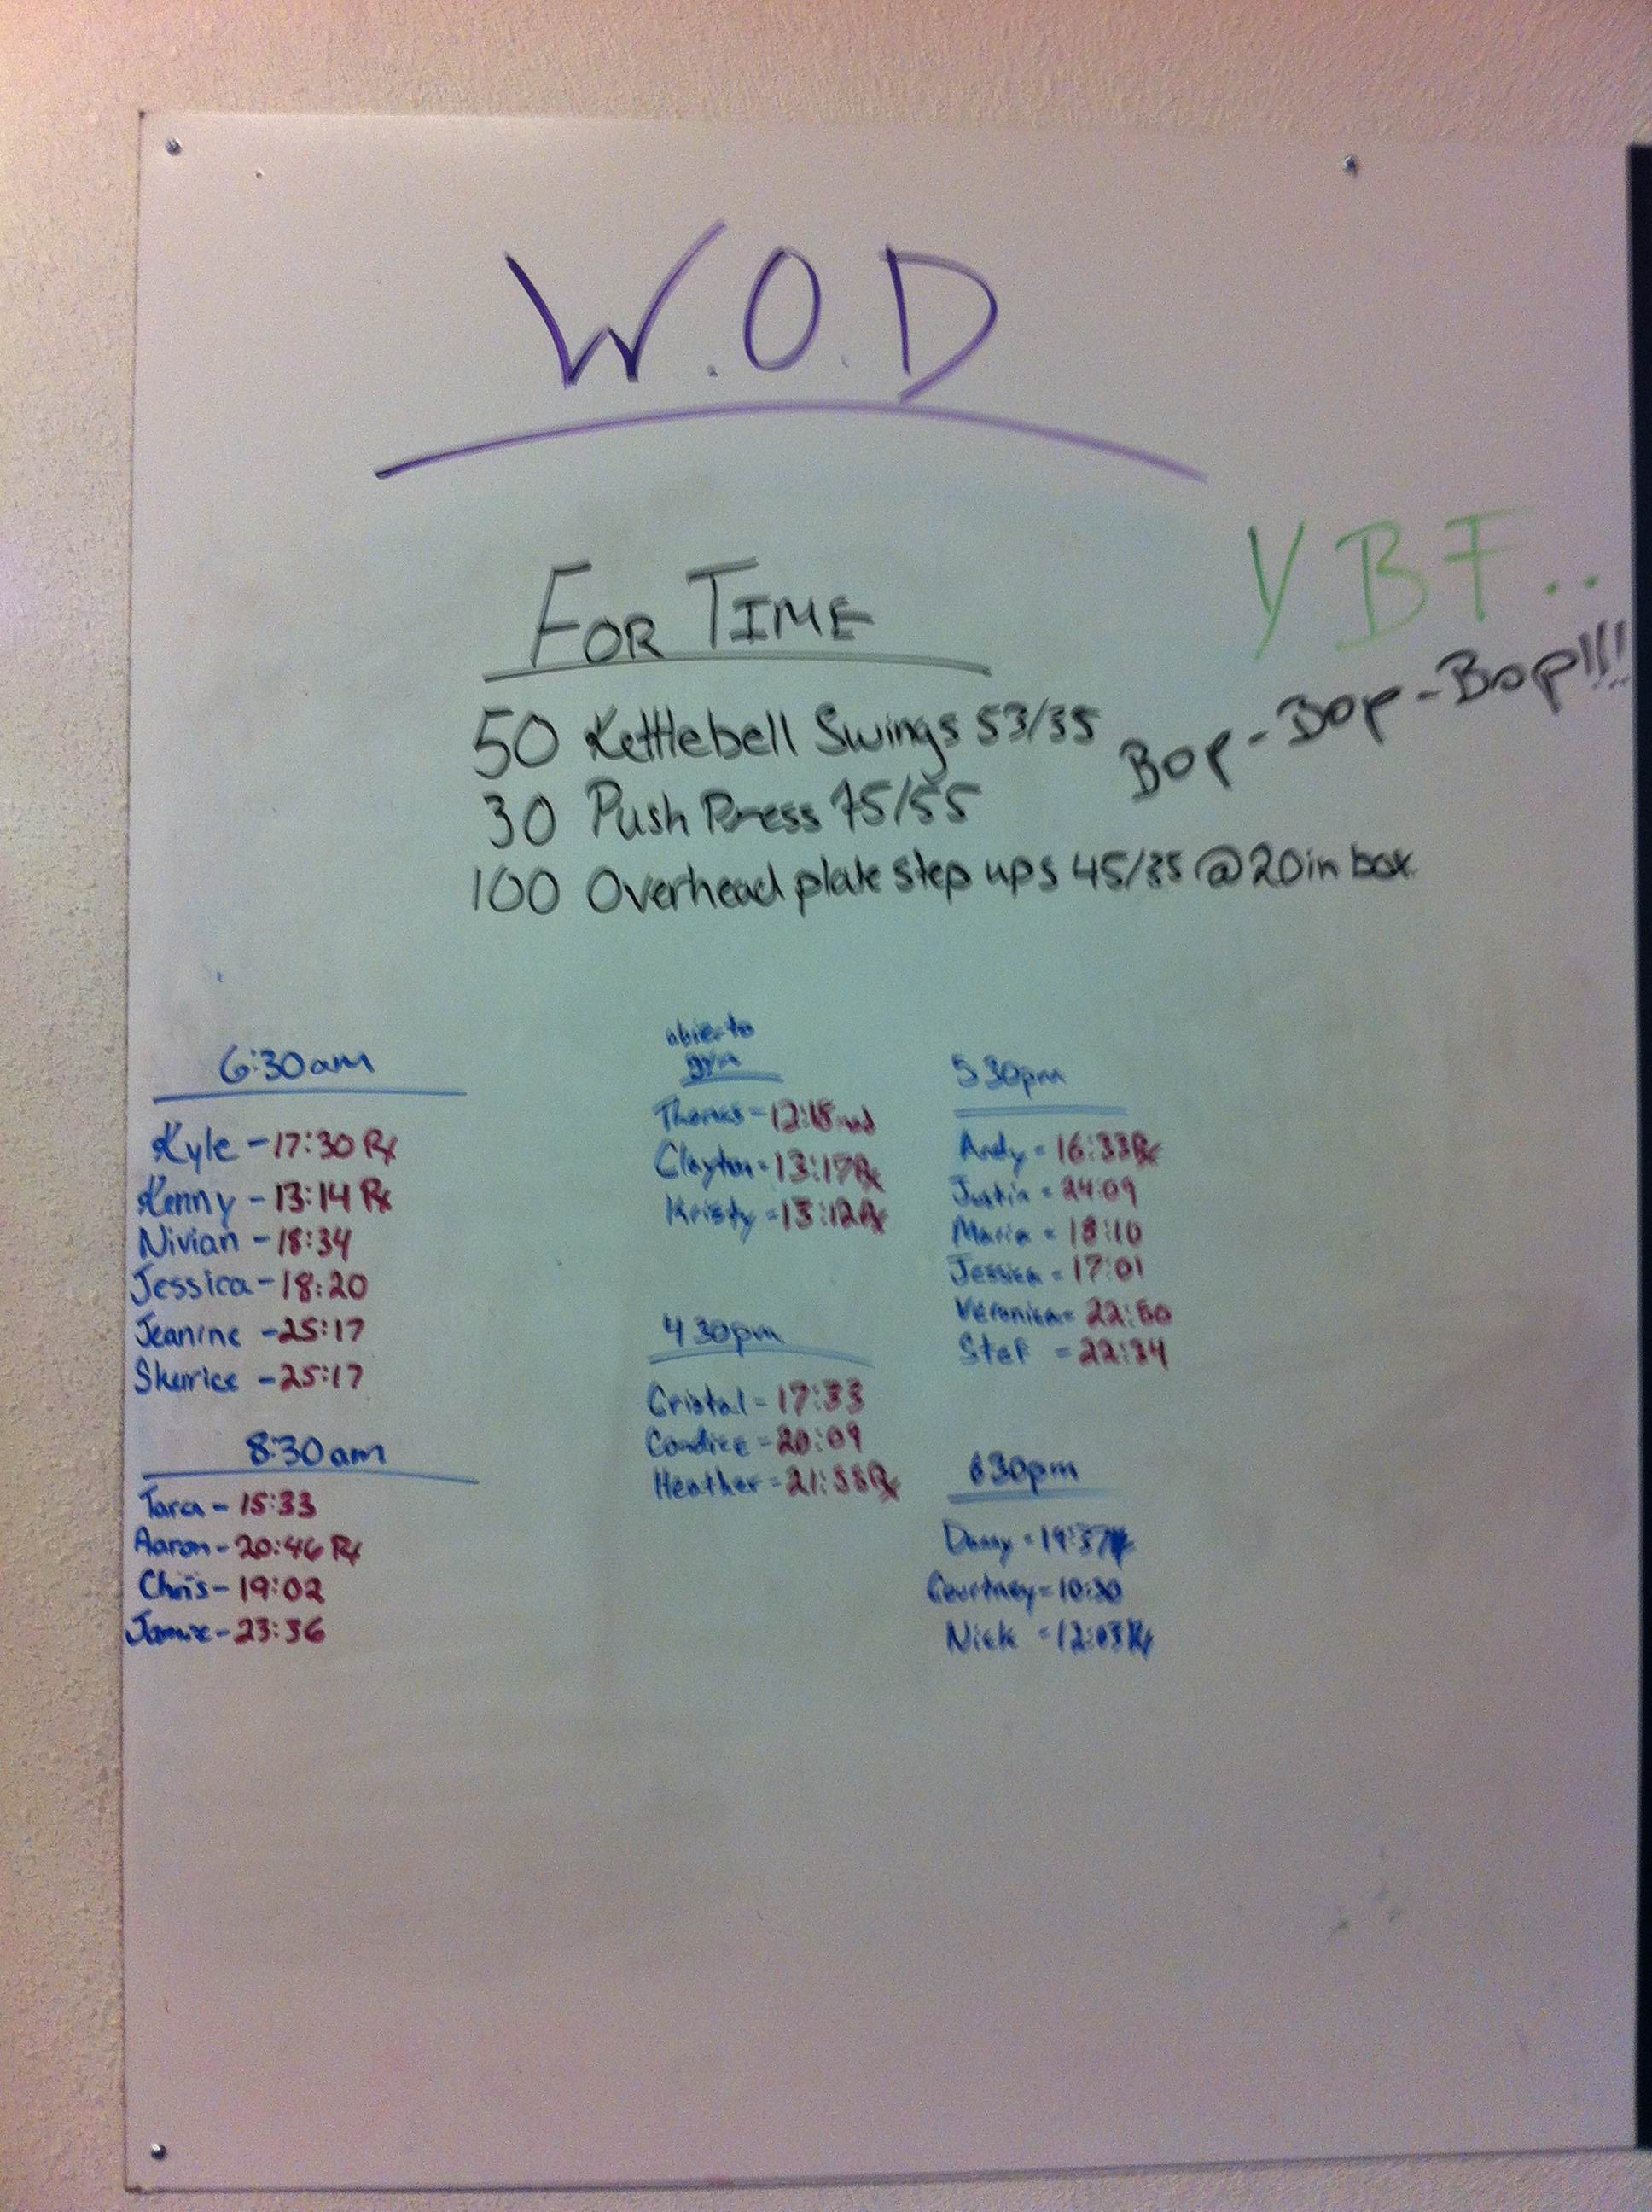 W.O.D
YBF..
Bop-Bop-Bop!!!!
FOR TIME
50 Kettlebell Swings 53/35
30 Push Press 75/55
100 Overhead plate step ups 45/35 @20in box
6:30am
Kyle - 17:30 Rx
Kenny - 13:14 Rx
Nivian - 18:34
Jessica - 18:20
Jeanine - 25:17
Skurice - 25:17
8:30am
Tara - 15:33
Aaron - 20:46 Rx
Chris - 19:02
Jamie - 23:36
abierto
gym
Thomas =
Clayton = 13:17Rx
Kristy = 13:12Rx
4 30pm
Cristal = 17:33
Candice = 20:09
Heather = Rx
5 30pm
Andy = 16:33Rx
Justin = 24:09
Maria = 18:10
Jessica = 17:01
Veronica = 22:50
Stef = 22:34
630pm
Courtney = 10:30
Nick = 12:03 Rx